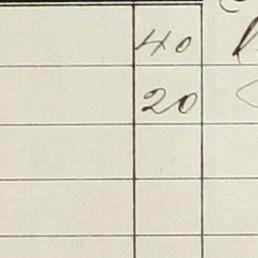 40
20